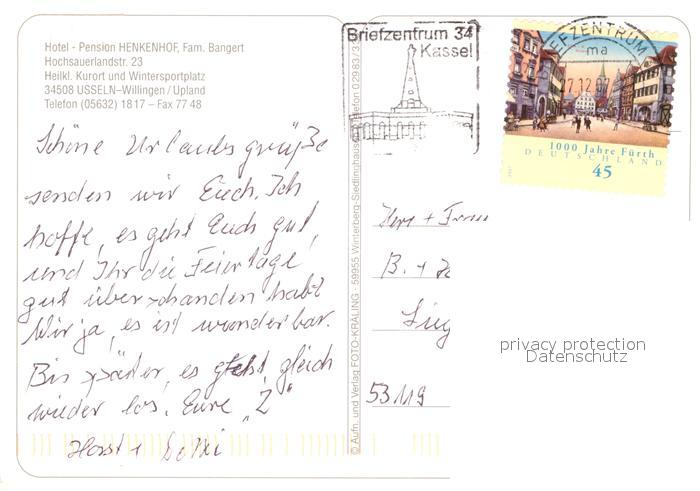 Hotel - Pension HENKENHOF, Fam. Bangert
Hochsauerlandstr. 23
Heilkl. Kurort und Wintersportplatz
34508 USSELN–Willingen / Upland
Telefon (05632) 1817 – Fax 77 48
Schöne Urlaubsgrüße
senden wir Euch. Ich
hoffe, es geht Euch gut,
und Ihr die Feiertage
gut überstanden habt
Wir ja, es ist wunderbar.
Bis später, es geht gleich
wieder los. Eure „2"
Horst +
© Aufn. und Verlag FOTO-KRÄLING · 59955 Winterberg-Siedlinghausen
Briefzentrum 34
Kassel
BRIEFZENTRUM
ma
1000 Jahre Fürth
DEUTSCHLAND
45
Herr +
B. +
53119
privacy protection
Datenschutz